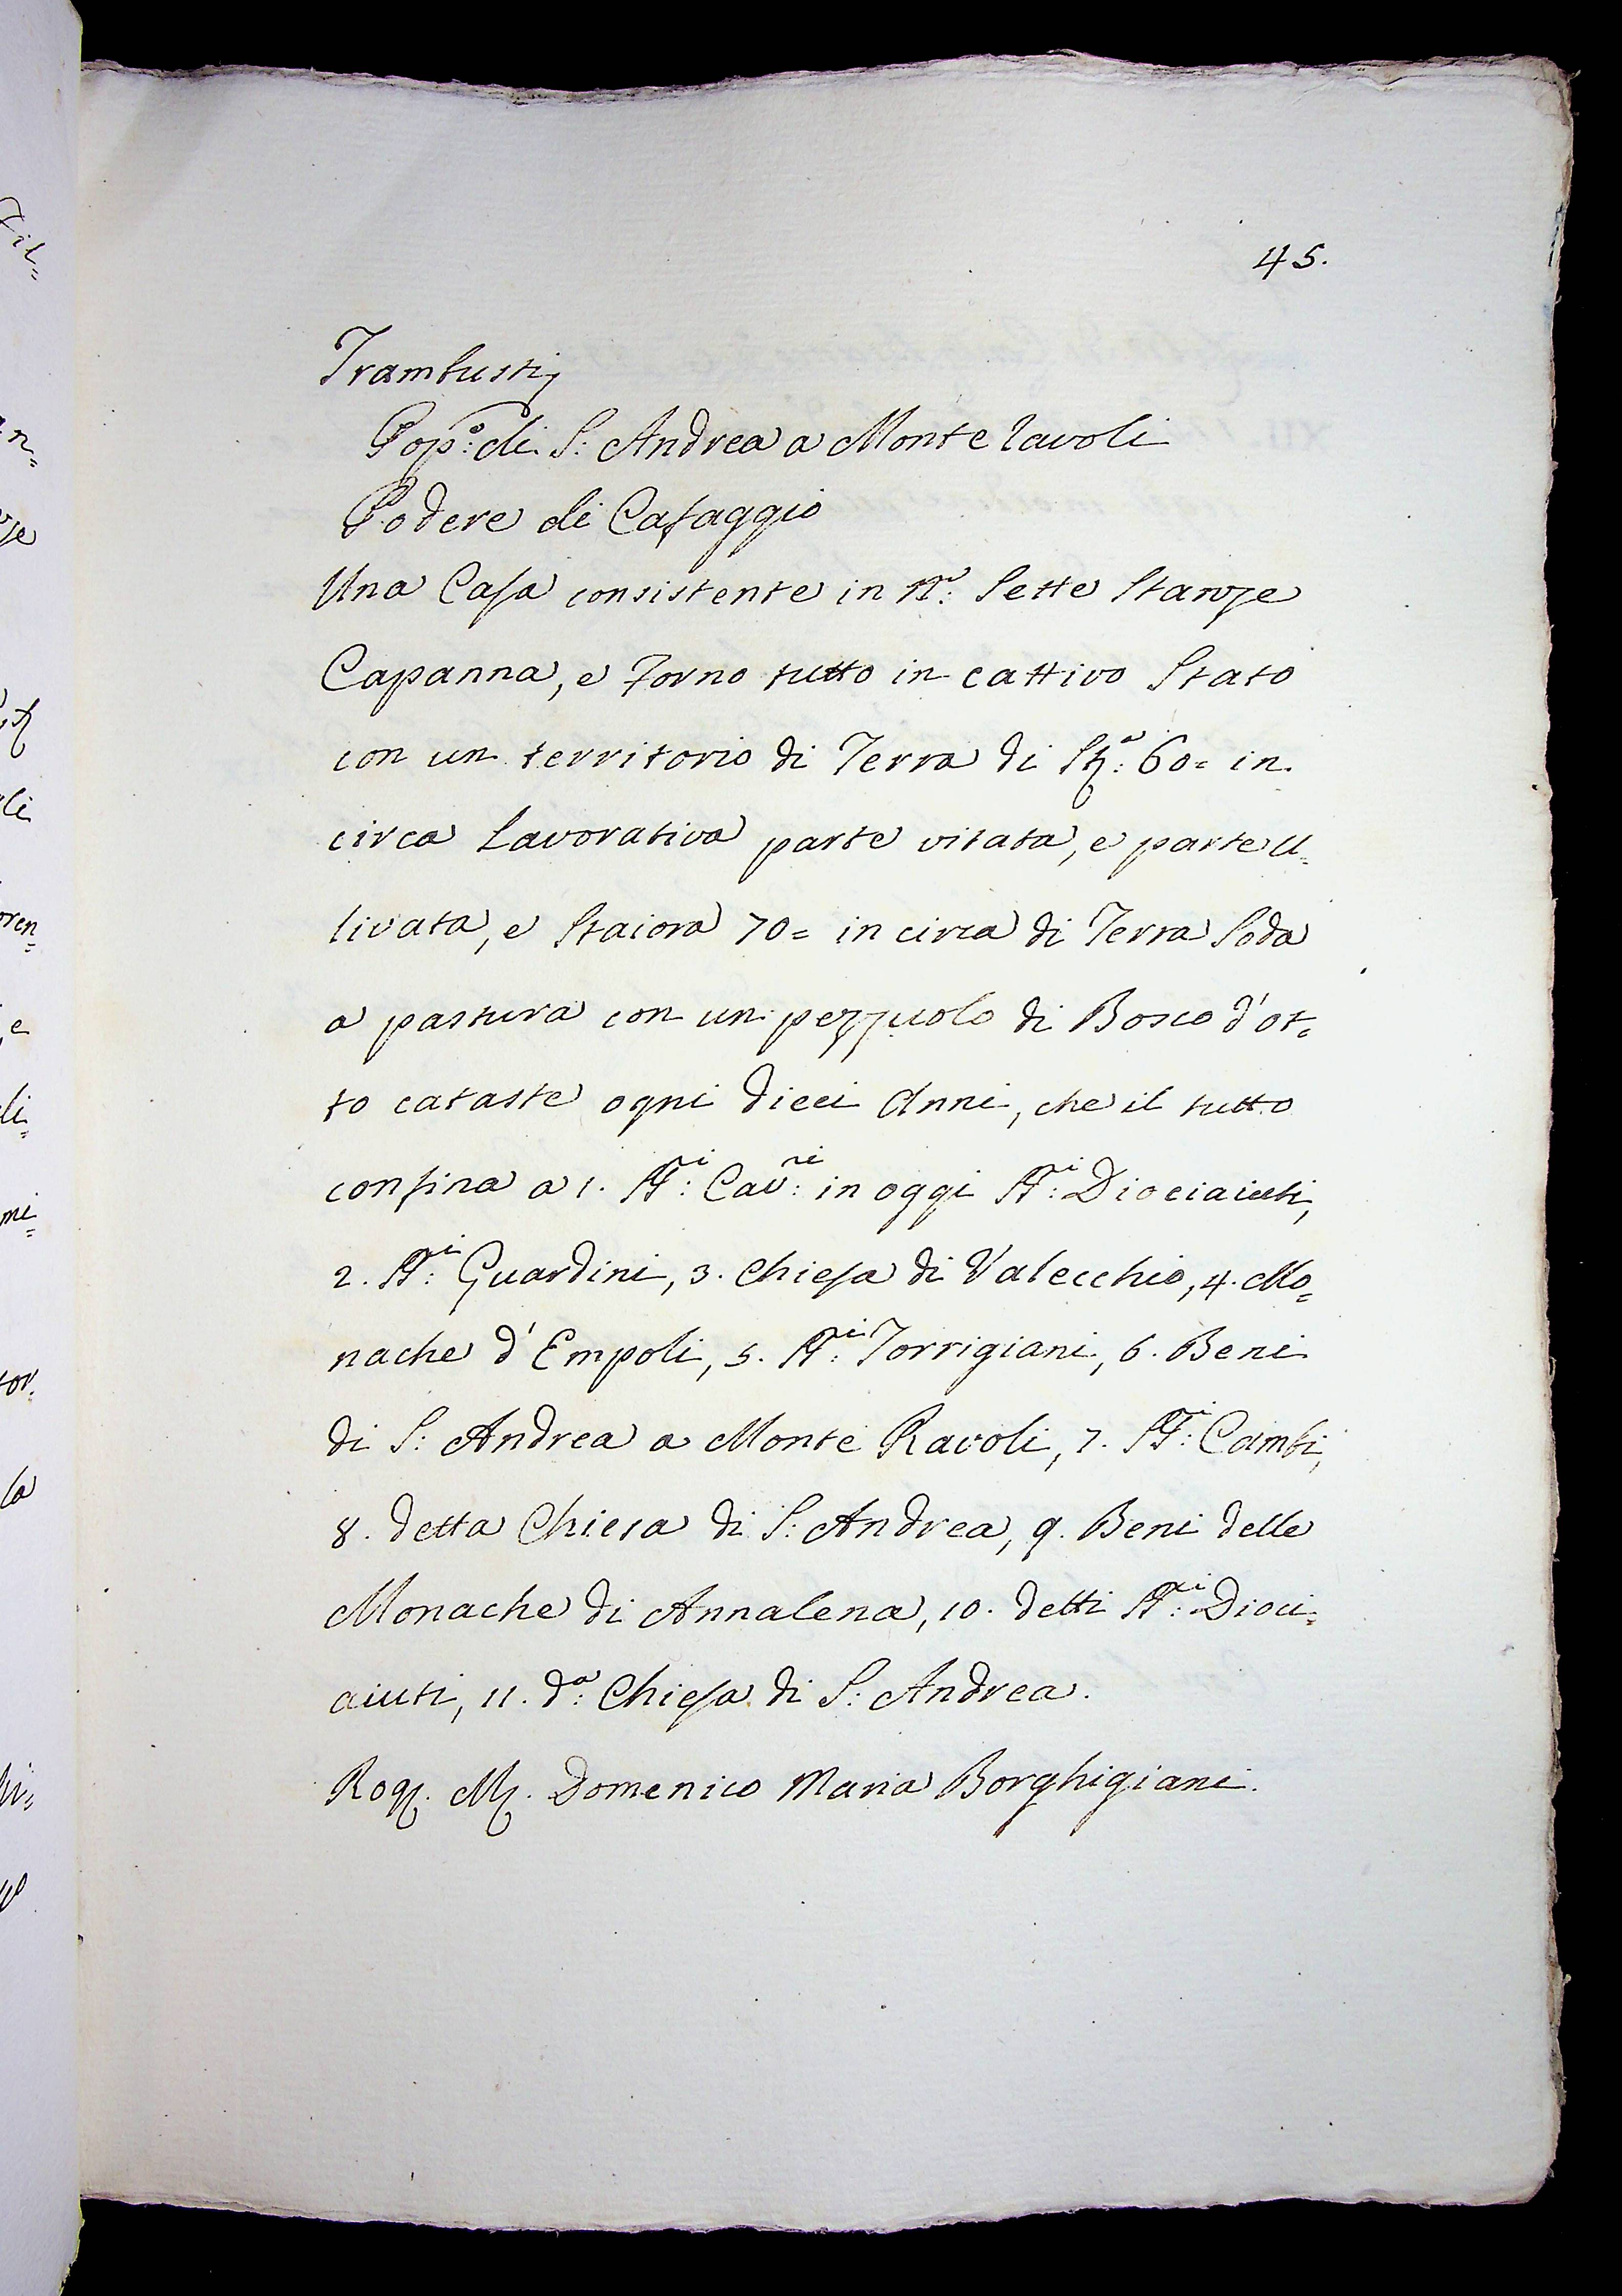 45.
Trambusti
Pop:º di S: Andrea a Monte Ravoli
Podere di Cafaggio
Una Casa consistente in Nº: Sette Stanze
Capanna, e Forno tutto in cattivo Stato
con un territorio di Terra di Stª: 60= in
circa Lavorativa parte vitata, e parte U=
livata, e Staiora 70= in circa di Terra Soda
a pastura con un pezzuolo di Bosco d'ot=
to cataste ogni dieci Anni, che il tutto
confina a 1. SSri: Cavri: in oggi SSri: Diociaiuti,
2. SSri: Guardini, 3. Chiesa di Valecchio, 4. Mo=
nache d'Empoli, 5. SSri: Torrigiani, 6. Beni
di S: Andrea a Monte Ravoli, 7. SSri: Cambi,
8. detta Chiesa di S: Andrea, 9. Beni delle
Monache di Annalena, 10. detti SSri: Dioci=
aiuti, 11. dª: Chiesa di S: Andrea.
Rog. M. Domenico Maria Borghigiani.